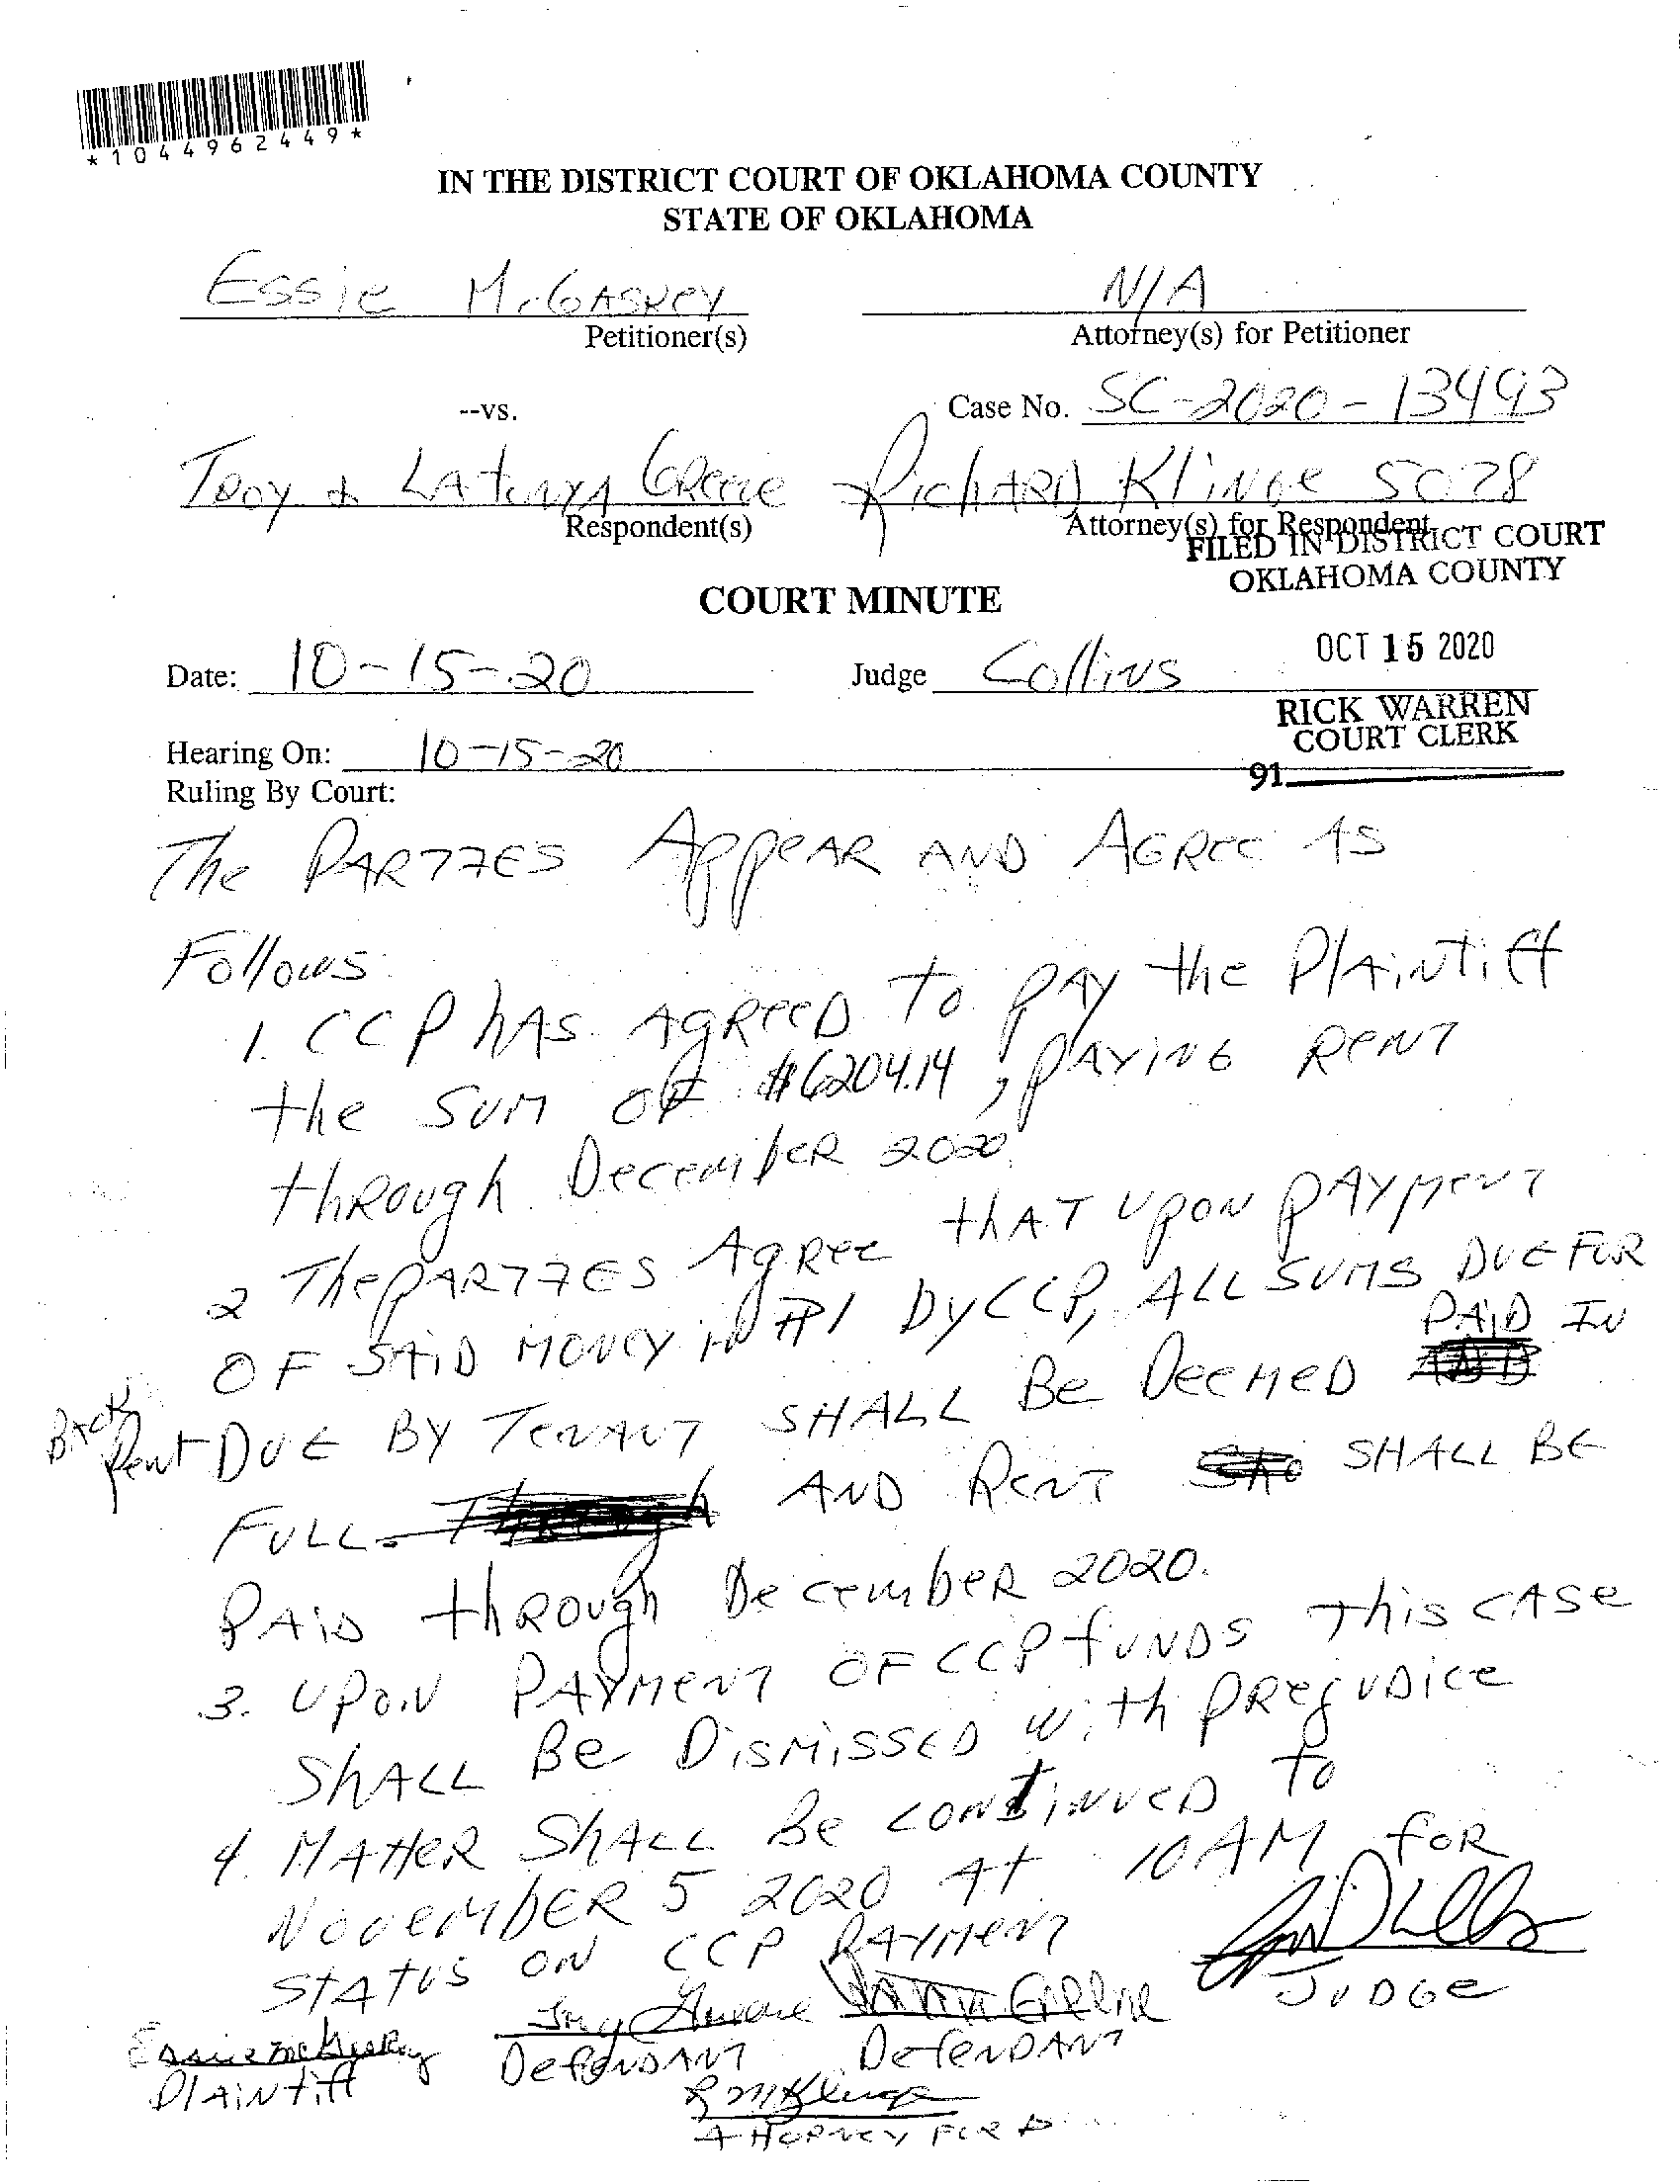 *1044962449*
IN THE DISTRICT COURT OF OKLAHOMA COUNTY
STATE OF OKLAHOMA
Essie McGaskey
N/A
Petitioner(s)
Attorney(s) for Petitioner
--vs.
Case No. SC-2020-13493
Troy & LaTunya Greene
Richard Klinge 5078
Respondent(s)
Attorney(s) for Respondent
FILED IN DISTRICT COURT
OKLAHOMA COUNTY
COURT MINUTE
OCT 15 2020
Date: 10-15-20
Judge Collins
RICK WARREN
COURT CLERK
Hearing On: 10-15-20
91
Ruling By Court:
The PARTIES AppeAR AND AGRee AS
Follows
1. CCP hAS AgReeD To pAY the PlAiNtiff
the SUM of #6204.14, pAYiNG ReNT
thRough DecembeR 2020
2 The pARTIES AgRee thAT upoN pAYMeNT
OF SAiD MONeY iN #1 by CCP, ALL SUMS DUE FOR
PAiD IN
Back Rent DUE BY TeNANT SHALL Be DeeMeD
FULL. AND ReNT SHALL BE
PAiD thRough DecembeR 2020.
3. UpoN PAYMeNT OF CCP fuNDS This CASe
ShALL Be DiSMiSSeD with pRejuDice
4. MAtteR ShALL Be coNtiNueD to
NovembeR 5 2020 At 10 AM foR
StAtuS oN CCP PAYMeNT
Greene
JuDGe
Essie McGaskey
PlAiNtiff
DefeNDANT
DefeNDANT
R M Klinge
AttoRNey FoR D